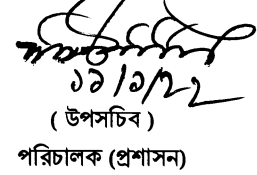 ১৯/১/২২
( উপসচিব )
পরিচালক (প্রশাসন)